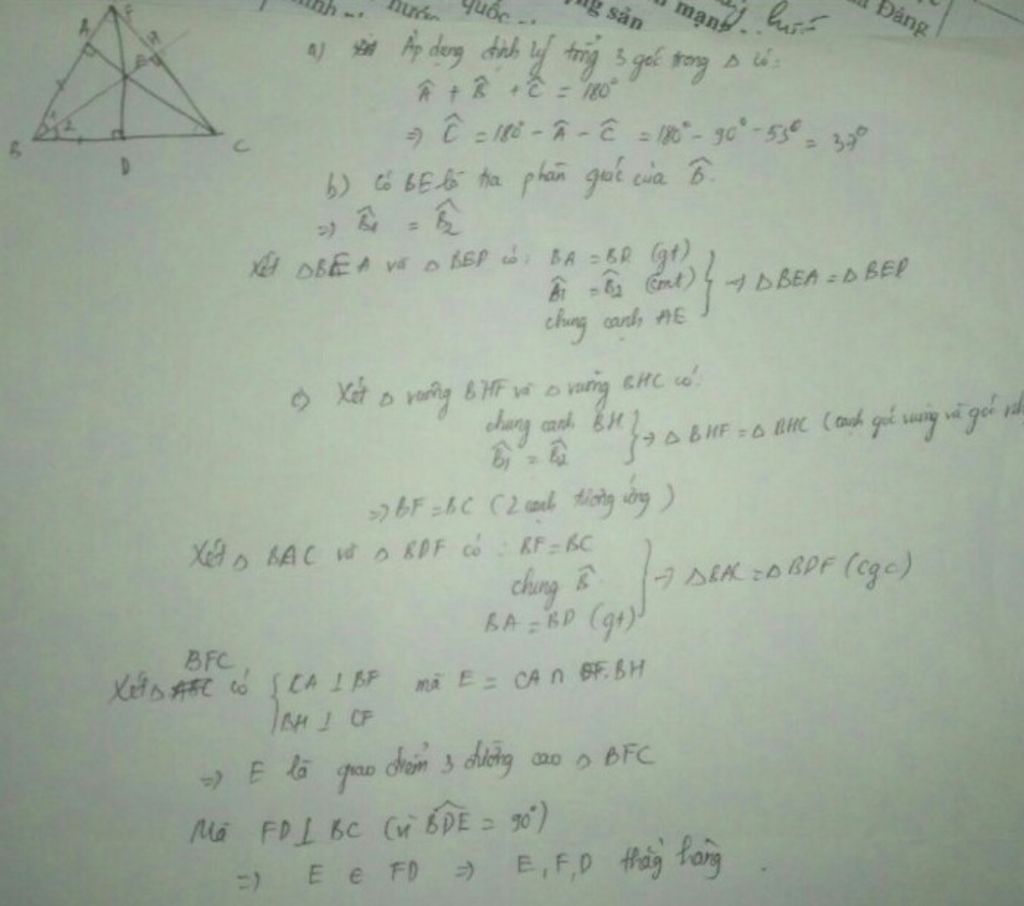 quốc ..
ng sản
mạnh
Đảng
F
A
H
E
1
2
B
D
C
a) Áp dụng định lý tổng 3 góc trong Δ có:
Â + B̂ + Ĉ = 180°
=> Ĉ = 180° - Â - Ĉ = 180° - 90° - 53° = 37°
b) Có BE là tia phân giác của B̂.
=> B̂1 = B̂2
Xét ΔBEA và ΔBED có: BA = BD (gt)
B̂1 = B̂2 (cmt)
chung cạnh AE
→ ΔBEA = ΔBED
c) Xét Δ vuông BHF và Δ vuông BHC có:
chung cạnh BH
B̂1 = B̂2
→ ΔBHF = ΔBHC (cạnh góc vuông và góc
=> BF = BC (2 cạnh tương ứng)
Xét Δ BAC và Δ BDF có : BF = BC
chung B̂
BA = BD (gt)
→ ΔBAC = ΔBDF (cgc)
BFC
Xét Δ có { CA ⊥ BF mà E = CA ∩ BH
BH ⊥ CF
=> E là giao điểm 3 đường cao Δ BFC
Mà FD ⊥ BC (vì BDE = 90°)
=> E ∈ FD => E, F, D thẳng hàng .